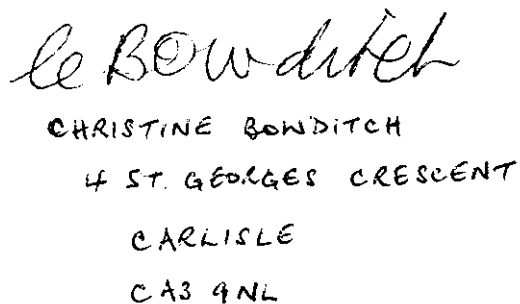 Ce Bowditch
CHRISTINE BOWDITCH
4 ST. GEORGES CRESCENT
CARLISLE
CA3 9NL